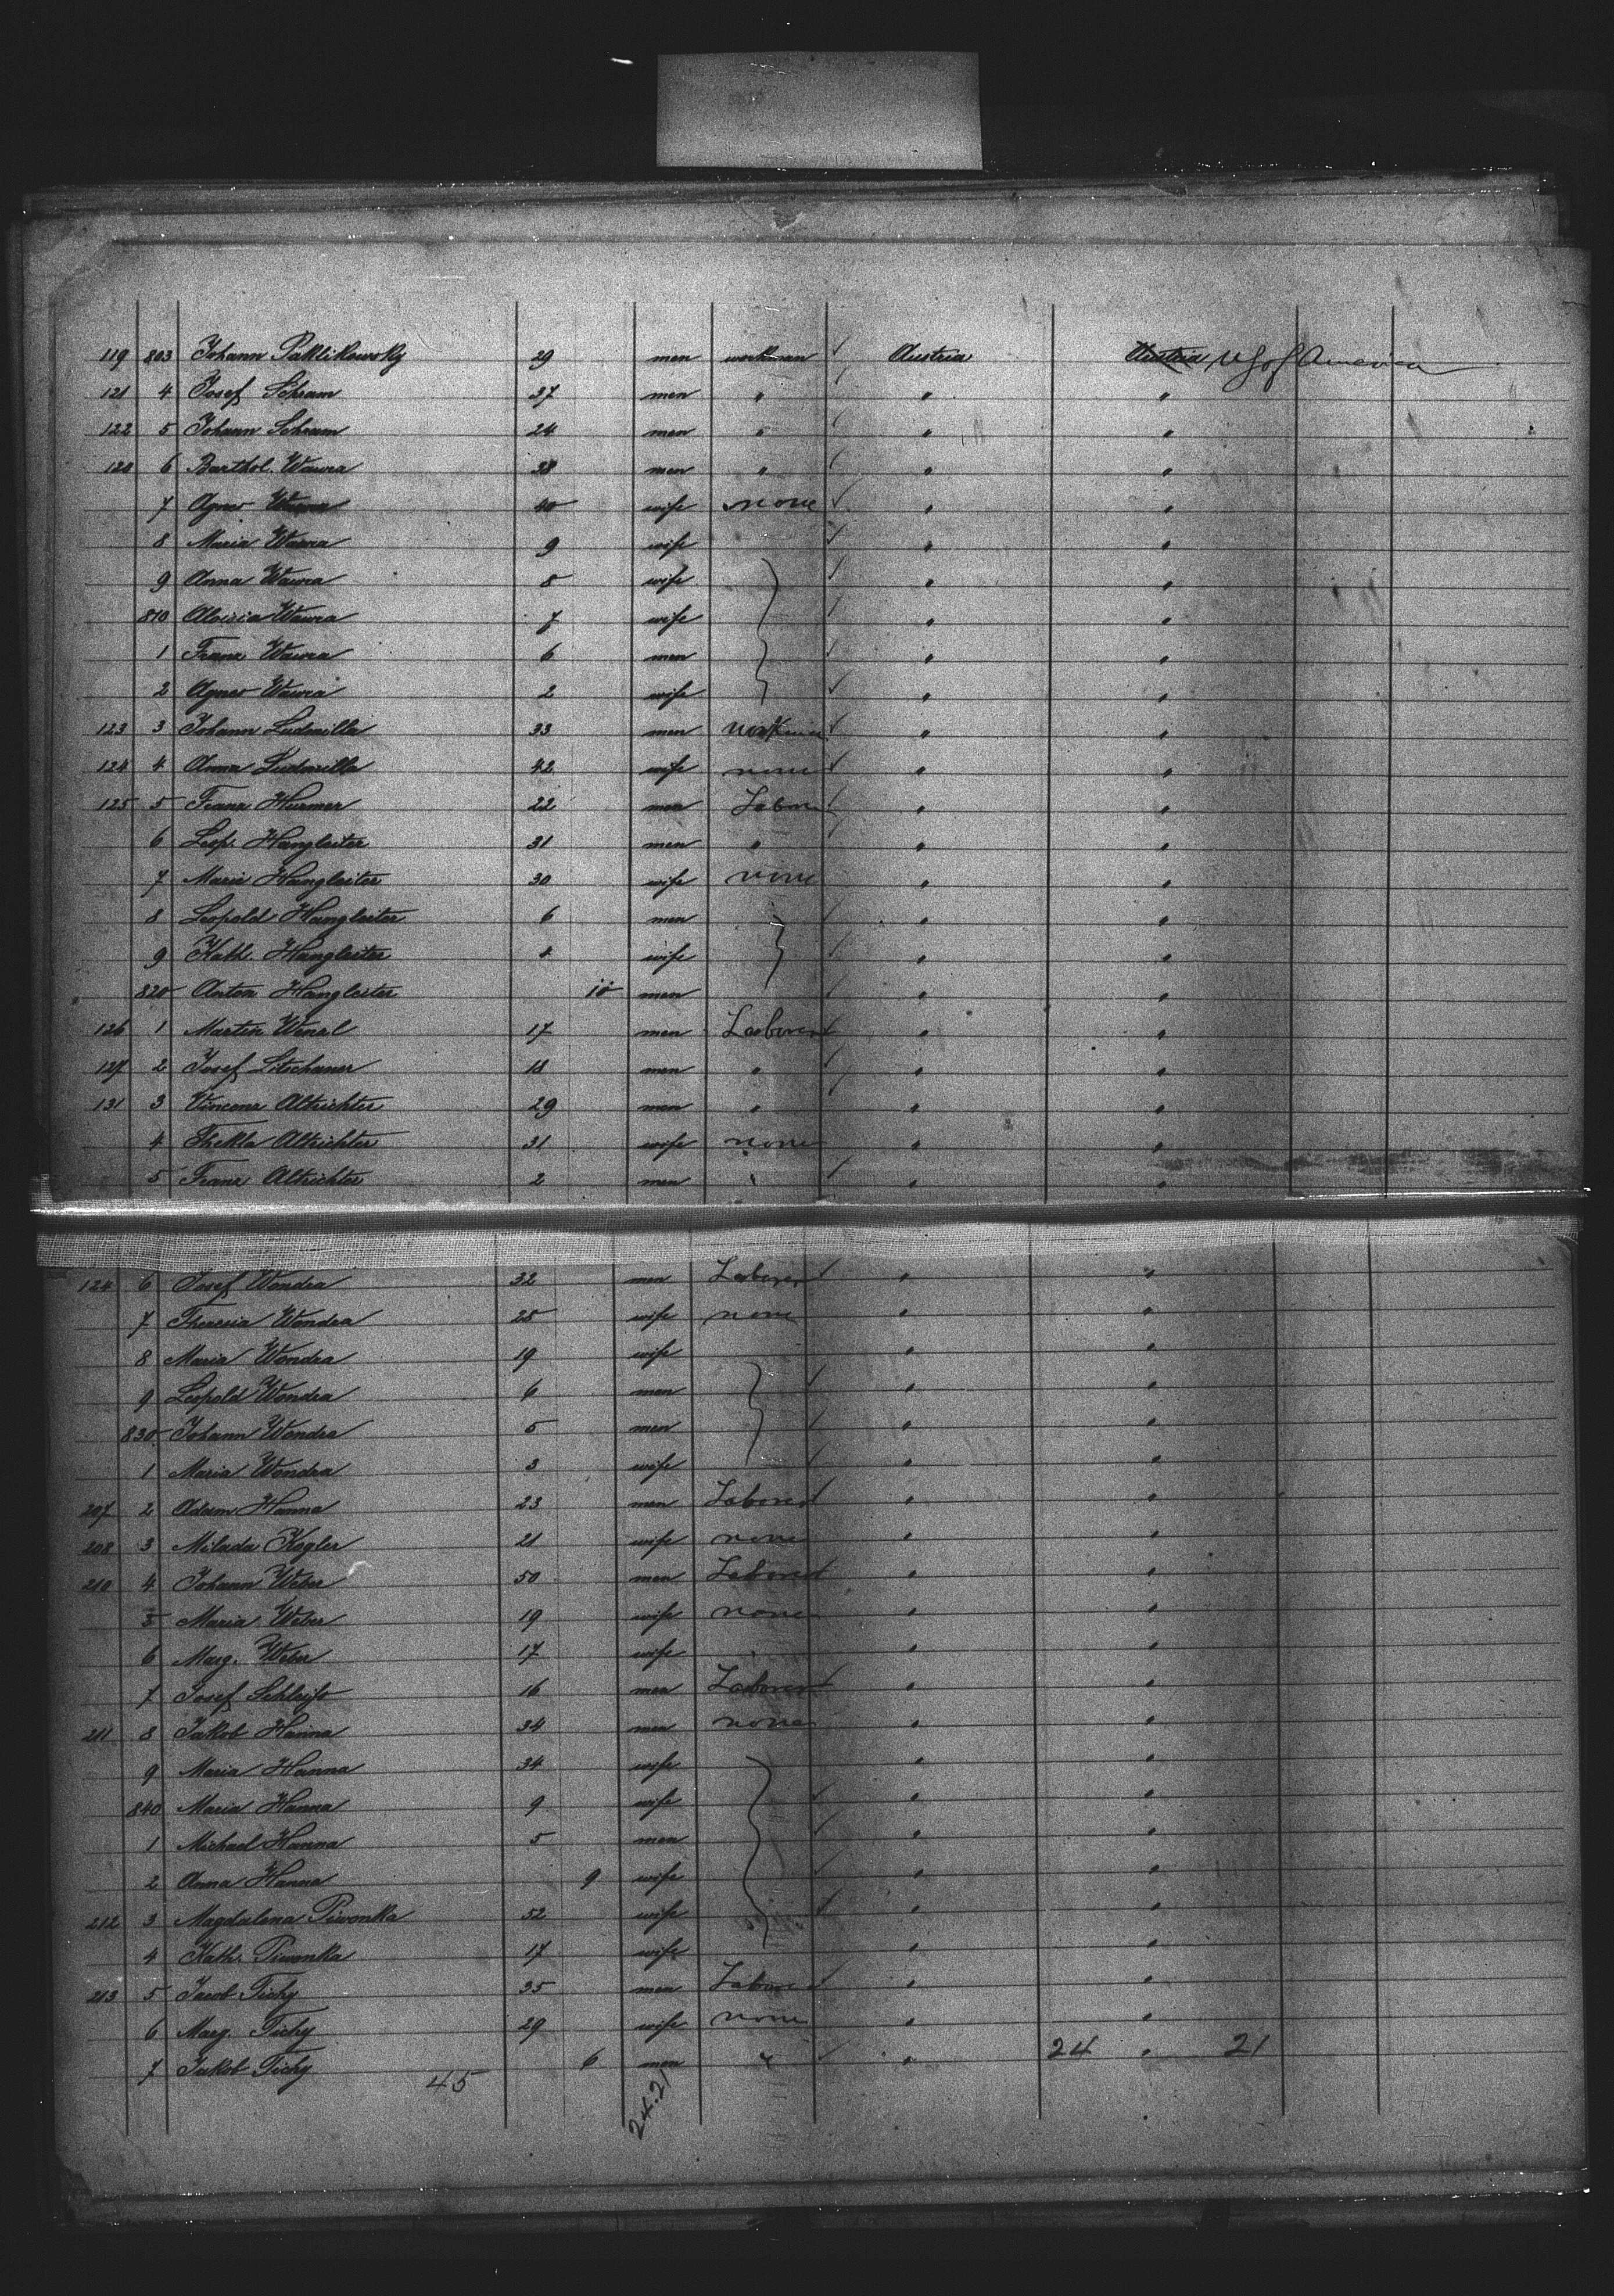 119 803 Johann Paklikowsky 29 men workman ✓ Austria Austria U S of America
121 4 Josef Schram 37 men " ✓ " "
122 5 Johann Schram 24 men " ✓ " "
120 6 Barthol. Wawra 38 men " ✓ " "
7 Agnes Wawra 40 wife none ✓ " "
8 Maria Wawra 9 wife ✓ " "
9 Anna Wawra 8 wife ✓ " "
810 Aloisia Wawra 7 wife ✓ " "
1 Franz Wawra 6 men ✓ " "
2 Agnes Wawra 2 wife ✓ " "
123 3 Johann Ludmilla 33 men ✓ " "
124 4 Anna Ludmilla 42 wife none ✓ " "
125 5 Franz Hurmer 22 men Labore ✓ " "
6 Leop. Hangleiter 31 men " ✓ " "
7 Marie Hangleiter 30 wife none " "
8 Leopold Hangleiter 6 men ✓ " "
9 Kath. Hangleiter 4 wife ✓ " "
820 Anton Hangleiter 10 men ✓ " "
126 1 Martin Wenzl 17 men Laborer ✓ " "
127 2 Josef Litschauer 18 men " ✓ " "
131 3 Vincenz Altrichter 29 men " " "
4 Thekla Altrichter 31 wife none " "
5 Franz Altrichter 2 men " ✓ " "
124 6 Josef Wondra 32 men Laborer ✓ " "
7 Theresia Wondra 25 wife none " "
8 Maria Wondra 19 wife " "
9 Leopold Wondra 6 men ✓ " "
830 Johann Wondra 5 men ✓ " "
1 Maria Wondra 3 wife ✓ " "
207 2 Adam Hanna 23 men Laborer ✓ " "
208 3 Milada Kogler 21 wife none " "
210 4 Johann Weber 50 men Laborer ✓ " "
5 Maria Weber 19 wife none " "
6 Marg. Weber 17 wife " " "
7 Josef 16 men Laborer ✓ " "
211 8 Jakob Hanna 34 men none " "
9 Maria Hanna 34 wife " "
840 Maria Hanna 9 wife ✓ " "
1 Michael Hanna 5 men ✓ " "
2 Anna Hanna 9 wife ✓ " "
212 3 Magdalena Piwonka 52 wife ✓ " "
4 Kath. Piwonka 17 wife " "
213 5 Jacob Tichy 35 men Laborer ✓ " "
6 Marg. Tichy 29 wife none " "
7 Jakob Tichy 6 men " ✓ " 24 " 21
45 24.21